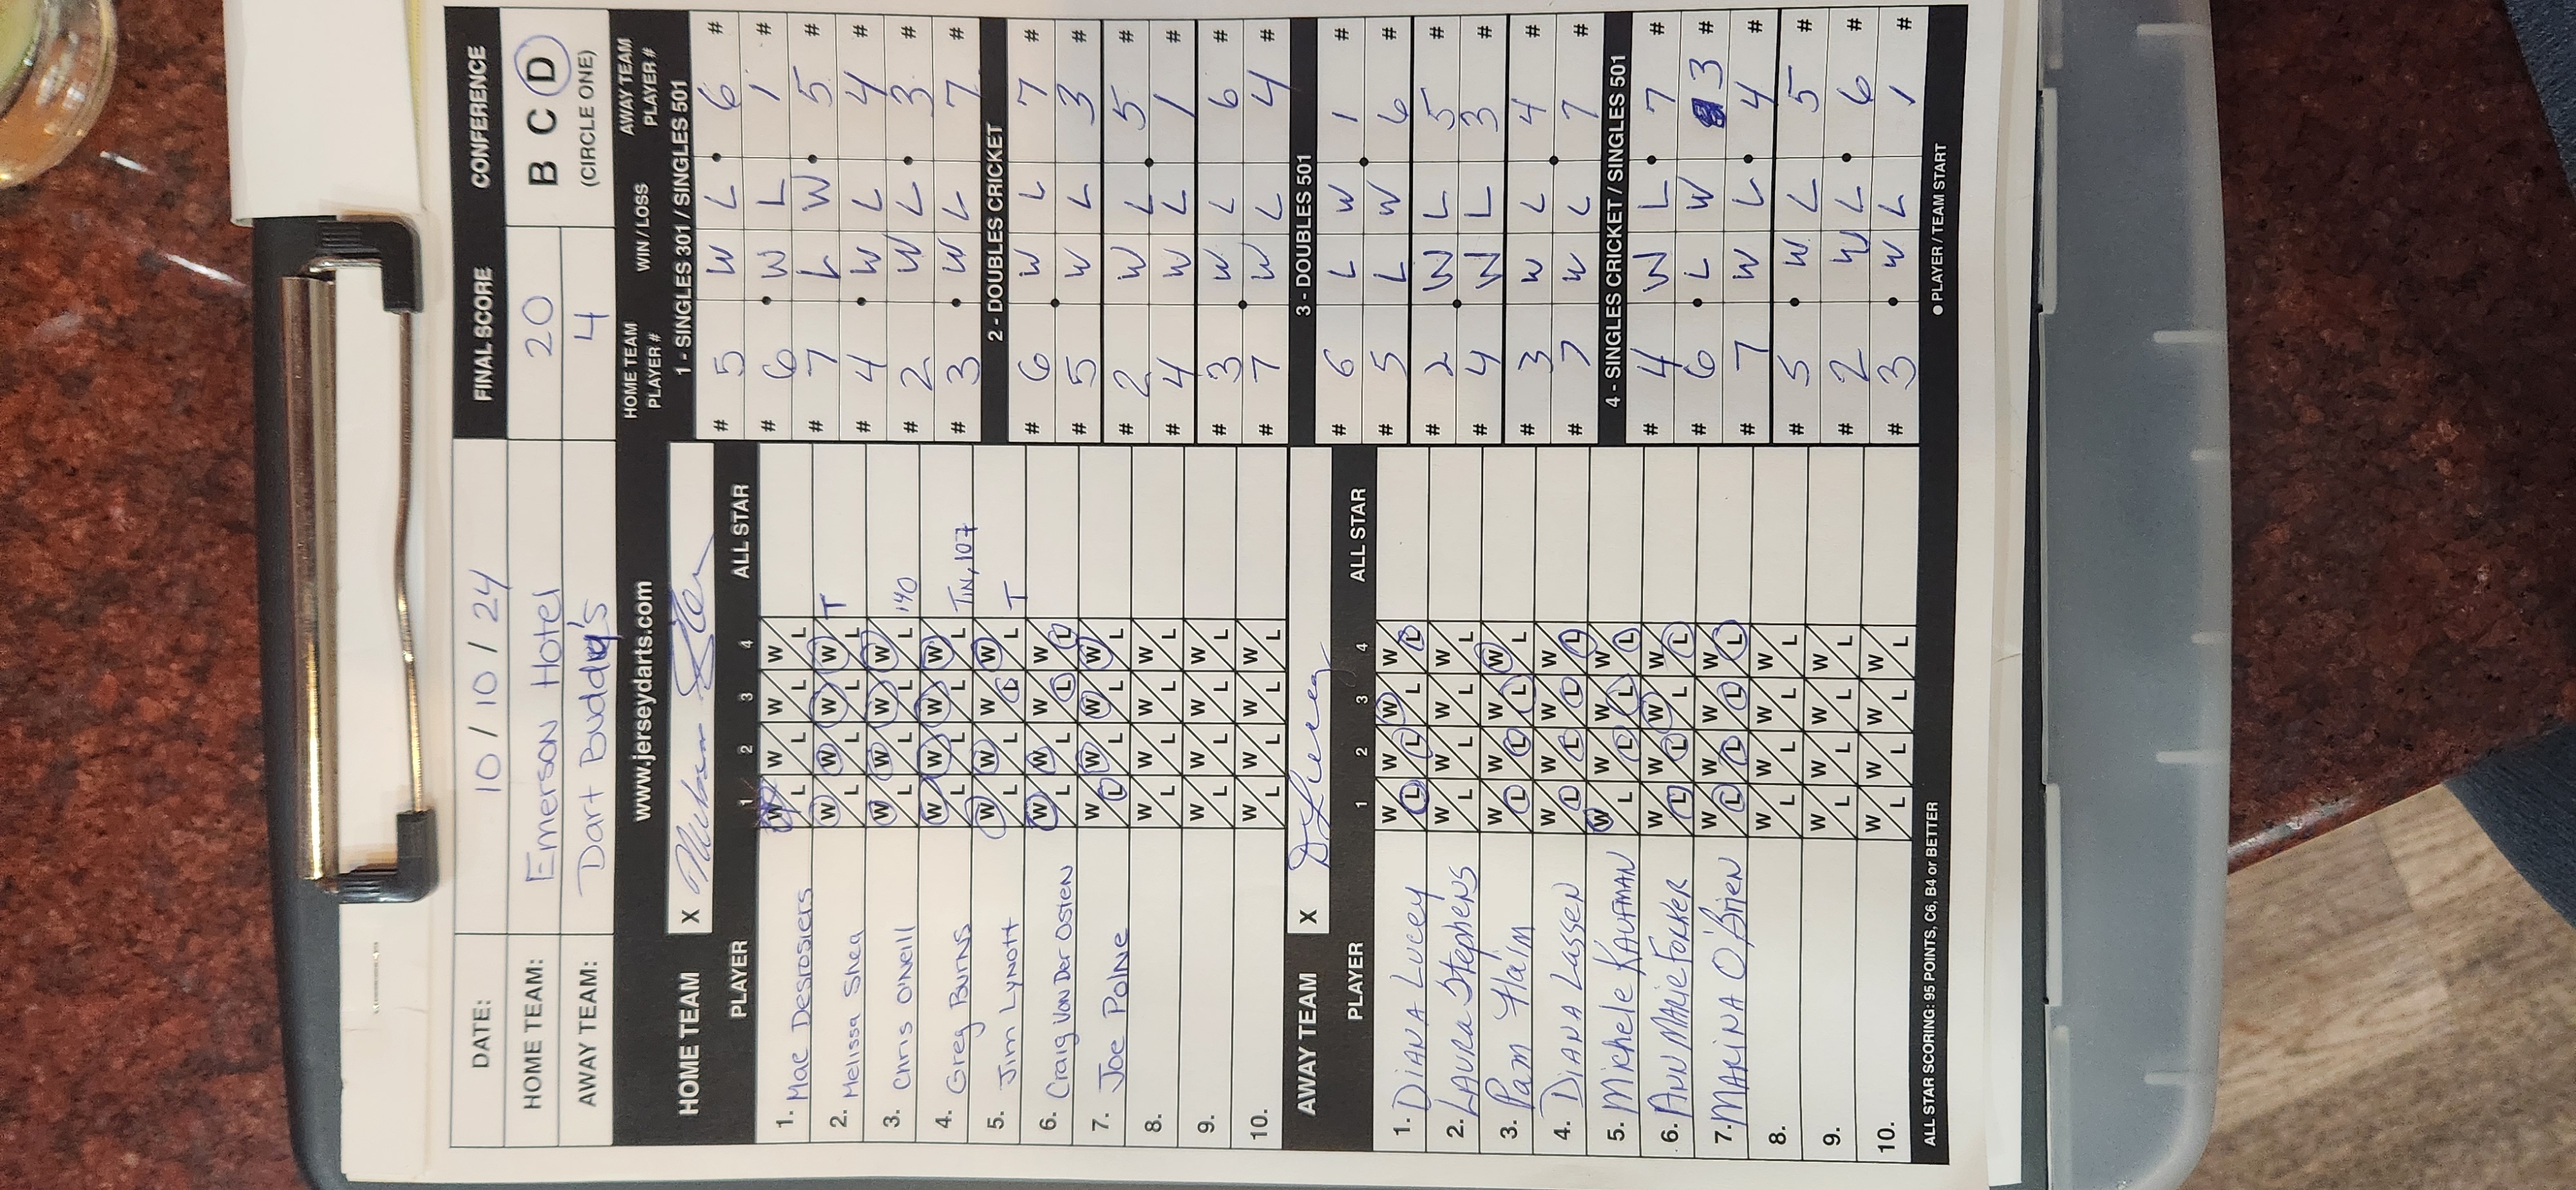 DATE: 10/10/24 FINAL SCORE CONFERENCE
HOME TEAM: Emerson Hotel 20 B C D
AWAY TEAM: Dart Buddy's 4 (CIRCLE ONE)
www.jerseydarts.com
HOME TEAM X
PLAYER 1 2 3 4 ALL STAR
1. Mac Desrosiers W L W L W L W L
2. Melissa Shea W L W L W L W L T
3. Chris O'Neill W L W L W L W L 140
4. Greg Burns W L W L W L W L TN, 107
5. Jim Lynott W L W L W L W L T
6. Craig Von Der Osten W L W L W L W L
7. Joe Polne W L W L W L W L
8. W L W L W L W L
9. W L W L W L W L
10. W L W L W L W L
AWAY TEAM X D Lucey
PLAYER 1 2 3 4 ALL STAR
1. DIANA LUCEY W L W L W L W L
2. LAURA Stephens W L W L W L W L
3. Pam W L W L W L W L
4. DIANA LASSEN W L W L W L W L
5. Michele KAUFMAN W L W L W L W L
6. ANN MARIE W L W L W L W L
7. MARINA O'BRIEN W L W L W L W L
8. W L W L W L W L
9. W L W L W L W L
10. W L W L W L W L
ALL STAR SCORING: 95 POINTS, C6, B4 or BETTER
HOME TEAM PLAYER # WIN / LOSS AWAY TEAM PLAYER #
1 - SINGLES 301 / SINGLES 501
# 5 W L • 6 #
# 6 • W L 1 #
# 7 L W • 5 #
# 4 • W L 4 #
# 2 W L • 3 #
# 3 • W L 7 #
2 - DOUBLES CRICKET
# 6 W L 7 #
# 5 W L 3 #
# 2 W L 5 #
# 4 W L 1 #
# 3 W L 6 #
# 7 W L 4 #
3 - DOUBLES 501
# 6 L W 1 #
# 5 L W 6 #
# 2 W L 5 #
# 4 W L 3 #
# 3 W L 4 #
# 7 W L 7 #
4 - SINGLES CRICKET / SINGLES 501
# 4 W L • 7 #
# 6 • L W 3 #
# 7 W L • 4 #
# 5 • W L 5 #
# 2 W L • 6 #
# 3 • W L 1 #
• PLAYER / TEAM START